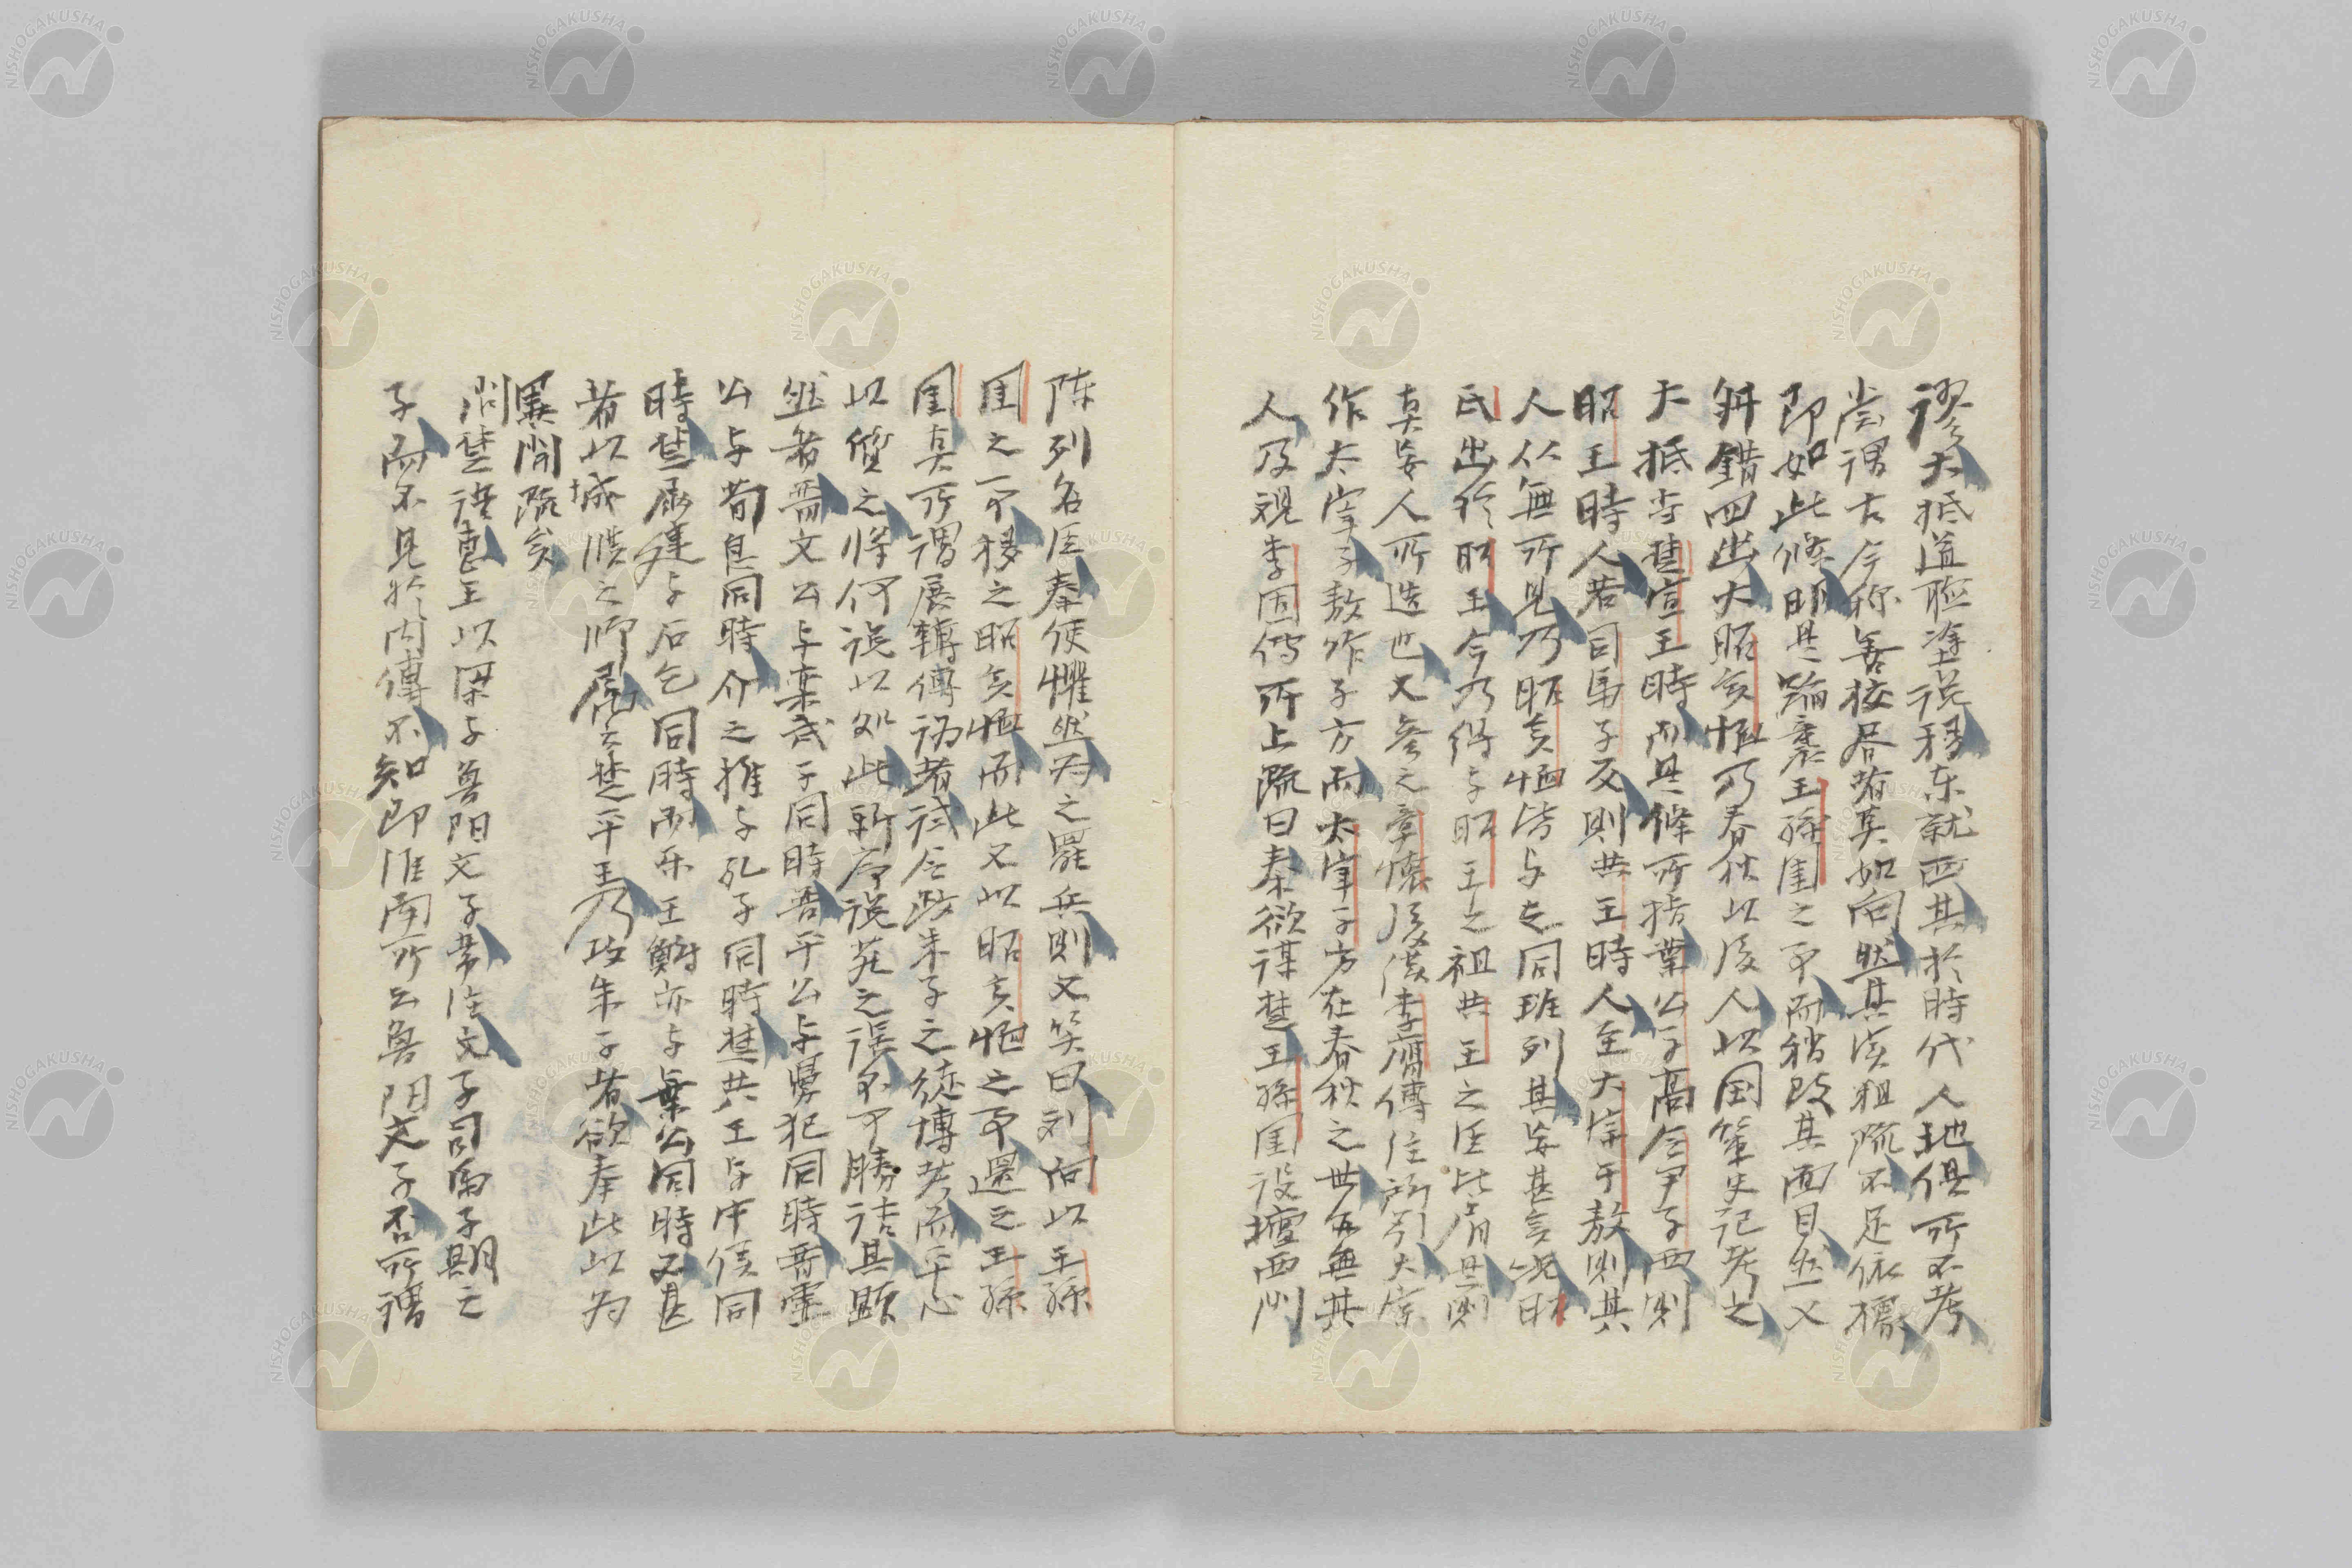 謬大抵道聴塗説移东就西其於時代人地俱所不考
嘗謂古今称善校君者莫如向然其実粗疏不足依據
即如此條明是踰襲王孫圉之可而稍改其面目然又
舛錯四出大昭奚恤乃春秋以後人以国策史記考之
大抵当楚宣王時而其條所指葉公子高令尹子西則
昭王時人若司馬子反則共王時人至大宗子敖則其
人从無所見乃昭奚恤皆与之同班列其妄甚矣况昭
氏出於昭王今乃得与昭王之祖共王之臣比肩是則
真妄人所造也又参之章懐後漢李膺傳注所引大宗
作太宰子敖作子方而太宰子方在春秋之世亦無其
人及視李固傳所上疏曰秦欲謀楚王孫圉設壇西門
陈列名臣秦使懼然为之罷兵則又笑曰刘向以王孫
圉之可移之昭奚恤而此又以昭奚恤之可還之王孫
圉真所謂展轉傳訛者試令政朱子之徒博考而平心
以質之将何説以处此新序説苑之误不可勝詰其顕
然者晋文公与栾武子同時晋平公与舅犯同時晋霊
公与荀息同時介之推与孔子同時楚共王与申侯同
時楚屈建与石乞同時而乐王鮒亦与葉公同時又甚
者以城濮之师属之楚平王乃攻朱子者欲奉此以为
異聞疏矣
問楚語惠王以梁与魯阳文子韦注文子司馬子期之
子而不見於内傳不知即淮南所云魯阳文子否所謂